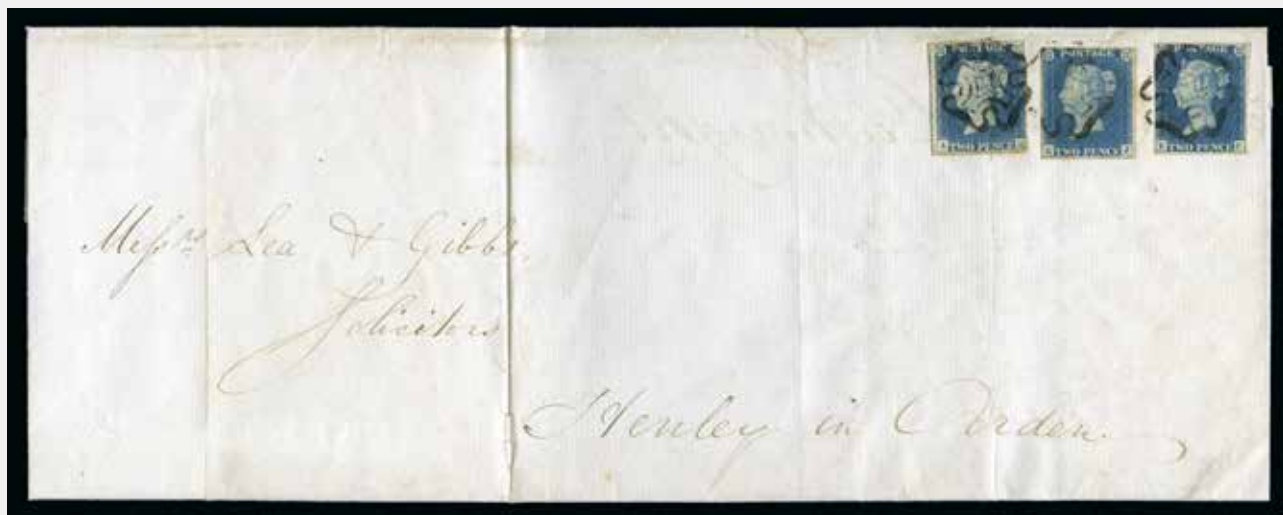 POSTAGE POSTAGE POSTAGE
TWO PENCE TWO PENCE TWO PENCE
Messrs Lea & Gibbs,
Solicitors
Henley in Arden